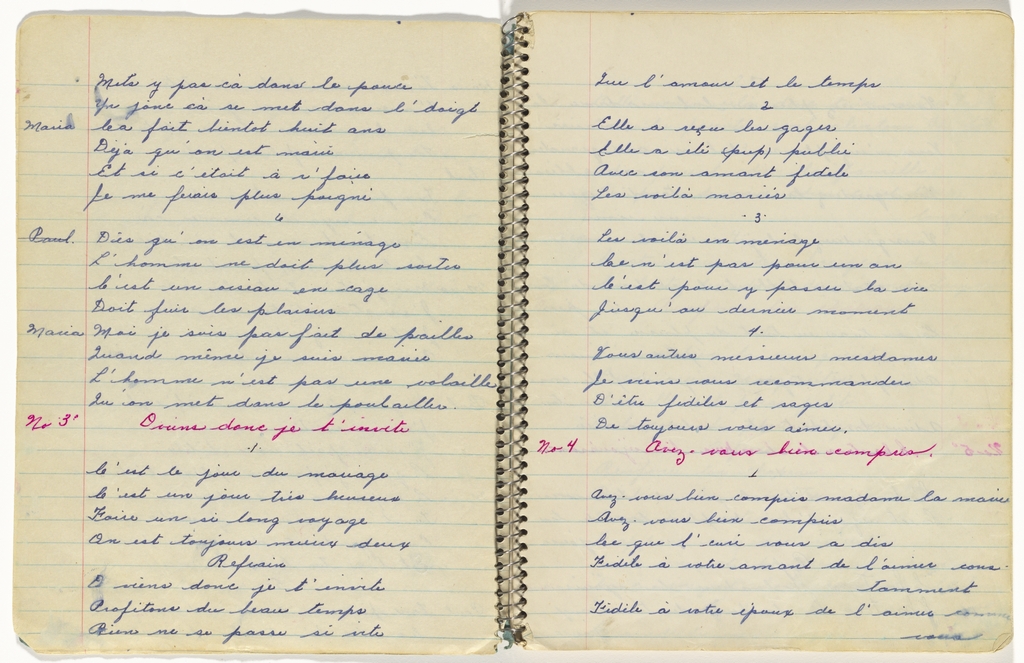 Mets y pas cà dans le pouce
Yn jonc cà se met dans l'doigt
Maria Cea fait bientot huit ans
Déjà qu'on est marié
Et si c'était à r'faire
Je me ferais plus poigné
6
Paul. Dès qu'on est en ménage
L'homme ne doit plus sortir
C'est un oiseau en cage
Doit fuir les plaisirs
Maria Moi je suis pas fait de pailles
Quand même je suis mariée
L'homme n'est pas une volaille
Qu'on met dans le poulailler.
No 3 O viens donc je t'invite
1.
C'est le jour du mariage
C'est un jour très heureux
Faire un si long voyage
On est toujours mieux deux
Refrain
O viens donc je t'invite
Profitons du beau temps
Rien ne se passe si vite
Que l'amour et le temps
2
Elle a reçu les gages
Elle a été (pup) publié
Avec son amant fidèle
Les voilà mariés
3
Les voilà en ménage
Ce n'est pas pour un an
C'est pour y passer la vie
Jusqu'au dernier moment
4.
Vous autres messieurs mesdames
Je viens vous recommander
D'être fidèles et sages
De toujours vous aimer.
No 4 Avez-vous bien compris.
1
Avez-vous bien compris madame la mariée
Avez-vous bien compris
Ce que l'curé vous a dis
Fidèle à votre amant de l'aimer cons-
tamment
Fidèle à votre époux de l'aimer comme
vous